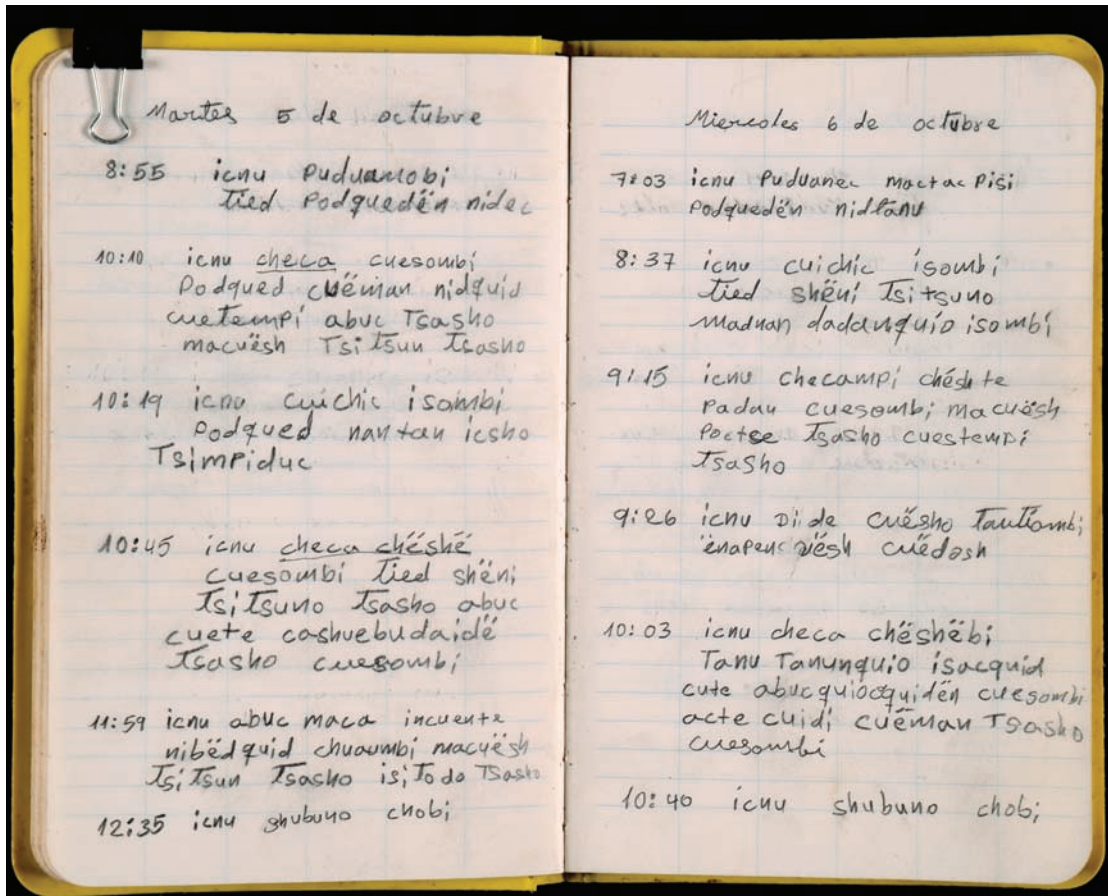 Martes 5 de octubre
8:55 icnu Puduanobi
tied Podquedën nidec
10:10 icnu checa cuesombi
Podqued cuëman nidquid
cuetempi abuc Tsasho
macuësh Tsitsun Tsasho
10:19 icnu cuichic isombi
Podqued nantan icsho
Tsimpiduc
10:45 icnu checa chëshë
cuesombi tied shëni
Tsitsuno Tsasho abuc
cuete cashuebudaidë
Tsasho cuesombi
11:59 icnu abuc maca incuente
nibëdquid chuaumbi macuësh
Tsitsun Tsasho isitodo Tsasho
12:35 icnu shubuno chobi
Miercoles 6 de octubre
7:03 icnu Puduanec mactac Pisi
Podquedën nidtanu
8:37 icnu cuichic isombi
tied shëni Tsitsuno
maduan dadanquio isombi
9:15 icnu checampi chështe
Padau cuesombi macuësh
Poctse Tsasho cuestempi
Tsasho
9:26 icnu Diide cuësho
cuëdash
10:03 icnu checa chëshëbi
Tanu Tanunquio isacquid
cute abucquiocquidën cuesombi
acte cuidi cuëman Tsasho
cuesombi
10:40 icnu shubuno chobi